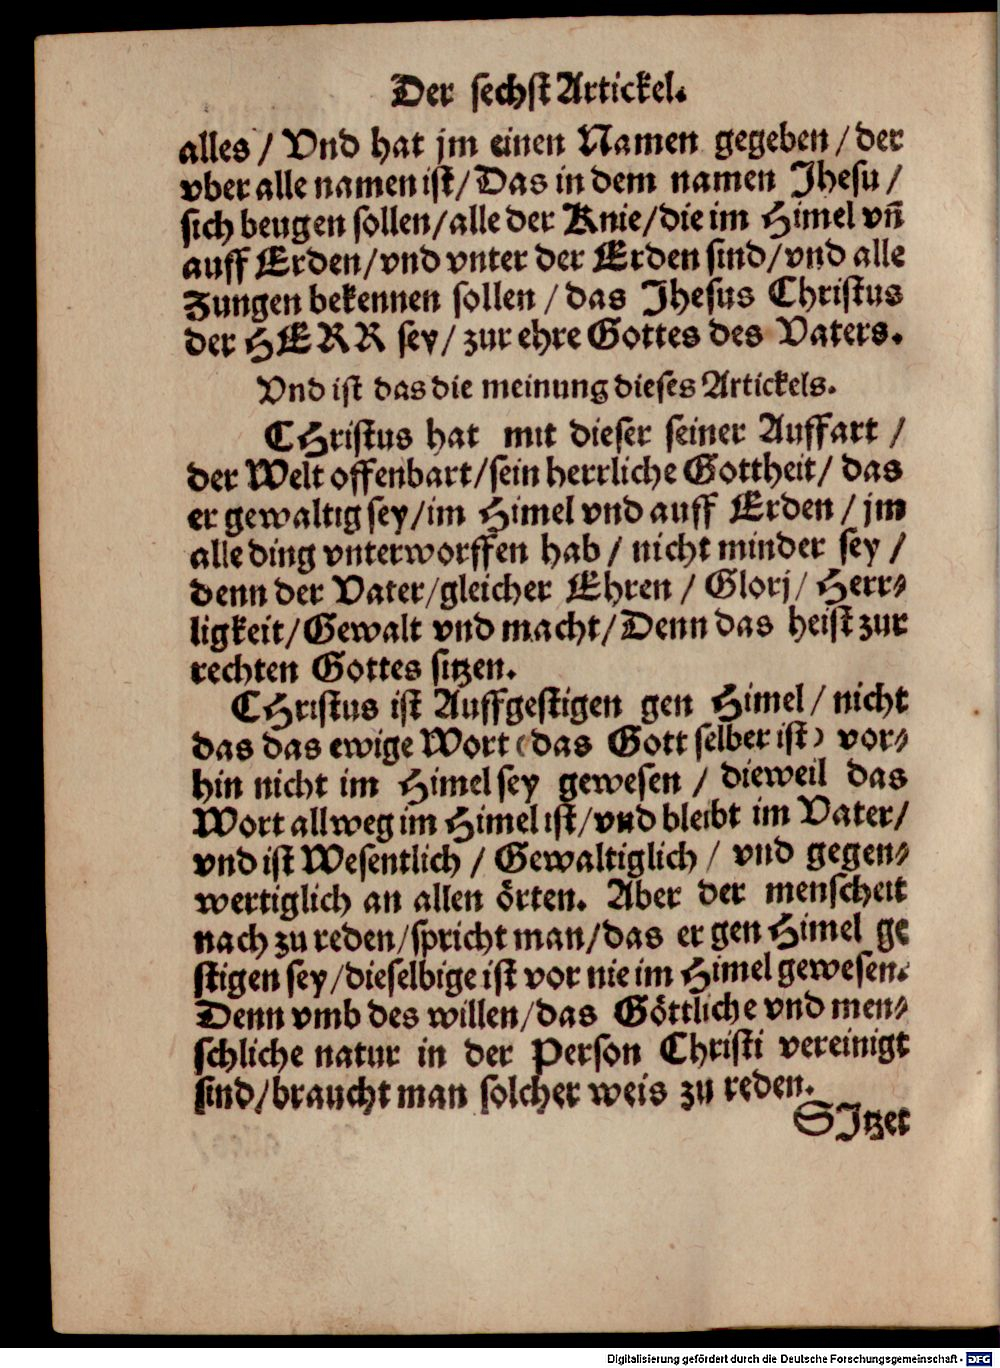 Der sechst Artickel.
alles / Vnd hat jm einen Namen gegeben / der
vber alle namen ist / Das in dem namen Jhesu /
sich beugen sollen / alle der Knie / die im Himel vñ
auff Erden / vnd vnter der Erden sind / vnd alle
Zungen bekennen sollen / das Jhesus Christus
der HERR sey / zur ehre Gottes des Vaters.
Vnd ist das die meinung dieses Artickels.
CHristus hat mit dieser seiner Auffart /
der Welt offenbart / sein herrliche Gottheit / das
er gewaltig sey / im Himel vnd auff Erden / jm
alle ding vnterworffen hab / nicht minder sey /
denn der Vater / gleicher Ehren / Glorj / Herr⸗
ligkeit / Gewalt vnd macht / Denn das heist zur
rechten Gottes sitzen.
CHristus ist Auffgestigen gen Himel / nicht
das das ewige Wort (das Gott selber ist) vor⸗
hin nicht im Himel sey gewesen / dieweil das
Wort allweg im Himel ist / vnd bleibt im Vater /
vnd ist Wesentlich / Gewaltiglich / vnd gegen⸗
wertiglich an allen örten. Aber der menscheit
nach zu reden / spricht man / das er gen Himel ge
stigen sey / dieselbige ist vor nie im Himel gewesen.
Denn vmb des willen / das Göttliche vnd men⸗
schliche natur in der Person Christi vereinigt
sind / braucht man solcher weis zu reden.
SJtzet
Digitalisierung gefördert durch die Deutsche Forschungsgemeinschaft - DFG